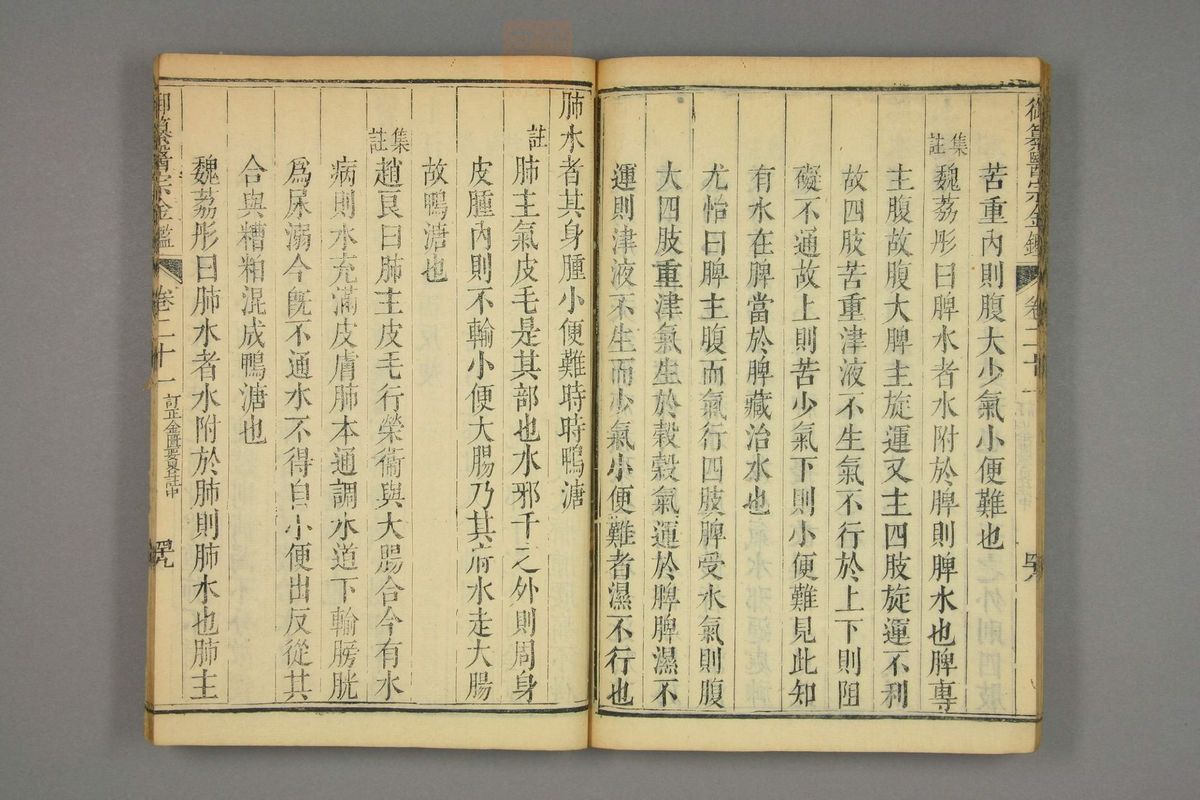 御纂醫宗金鑑 卷二十一
苦重內則腹大少氣小便難也
集註魏荔彤曰脾水者水附於脾則脾水也脾專
主腹故腹大脾主旋運又主四肢旋運不利
故四肢苦重津液不生氣不行於上下則阻
礙不通故上則苦少氣下則小便難見此知
有水在脾當於脾藏治水也
尤怡曰脾主腹而氣行四肢脾受水氣則腹
大四肢重津氣生於穀穀氣運於脾脾濕不
運則津液不生而少氣小便難者濕不行也
肺水者其身腫小便難時時鴨溏
註肺主氣皮毛是其部也水邪干之外則周身
皮腫內則不輸小便大腸乃其府水走大腸
故鴨溏也
集註趙良曰肺主皮毛行榮衞與大腸合今有水
病則水充滿皮膚肺本通調水道下輸膀胱
爲尿溺今旣不通水不得自小便出反從其
合與糟粕混成鴨溏也
魏荔彤曰肺水者水附於肺則肺水也肺主
御纂醫宗金鑑 卷二十一 訂正金匱要畧註中